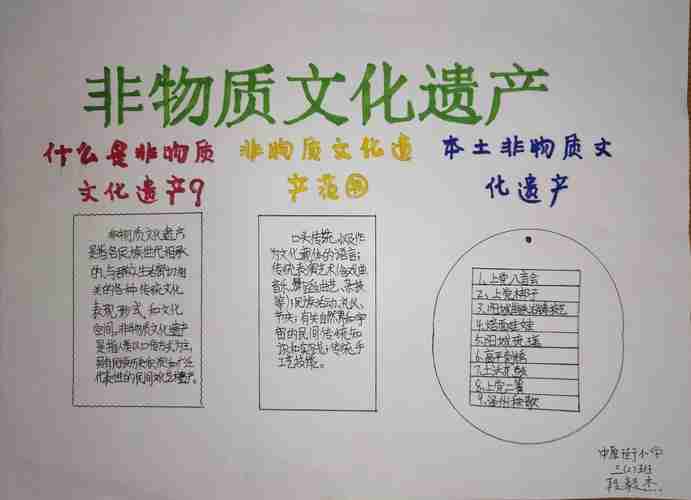 非物质文化遗产
什么是非物质
文化遗产?
非物质文化遗
产范围
本土非物质文
化遗产
非物质文化遗产
是指各民族世代相承
的、与群众生活密切相
关的各种传统文化
表现形式和文化
空间。非物质文化遗产
是指人类以口传方式为主,
代表性的民间文
口头传统,以及作
为文化载体的语言;
传统表演艺术(含戏曲
音乐、舞蹈、曲艺、杂技
等);民族活动、礼仪、
节庆;有关自然界和宇
宙的民间传统知
识和实践;传统手
工艺技能。
1、上党八音会
2、上党梆子
3、阳城
5、阳城
6、高平
8、上党二簧
9、泽州秧歌
中原街小学
三(2)班
段毅杰